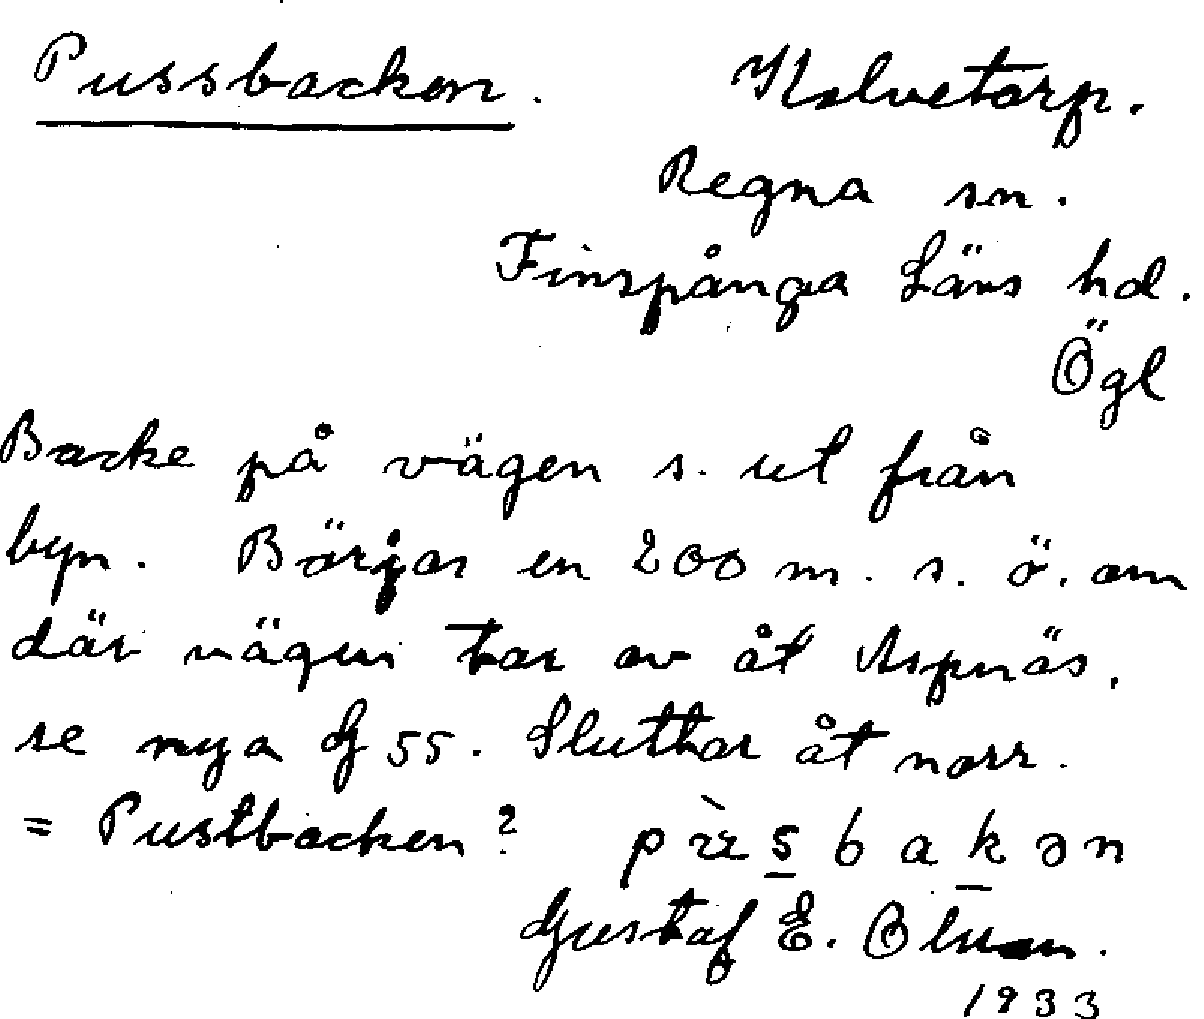 Pussbacken. Kalvetorp.
Regna sn.
Finspånga Läns hd.
Ögl
Backe på vägen s. ut från
byn. Börjar en 200 m. s. ö. om
där vägen tar av åt Aspnäs,
se nya G 55. Sluttar åt norr.
= Pustbacken?
Gustaf E. Blman.
1933